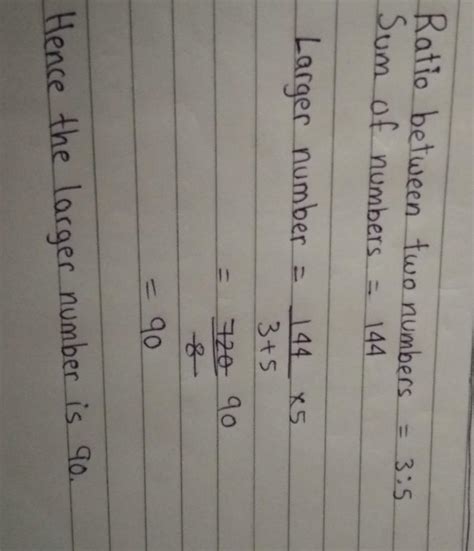 Ratio between two numbers = 3:5
Sum of numbers = 144
Larger number = 144 × 5
3+5
= 720 90
8
= 90
Hence the larger number is 90.